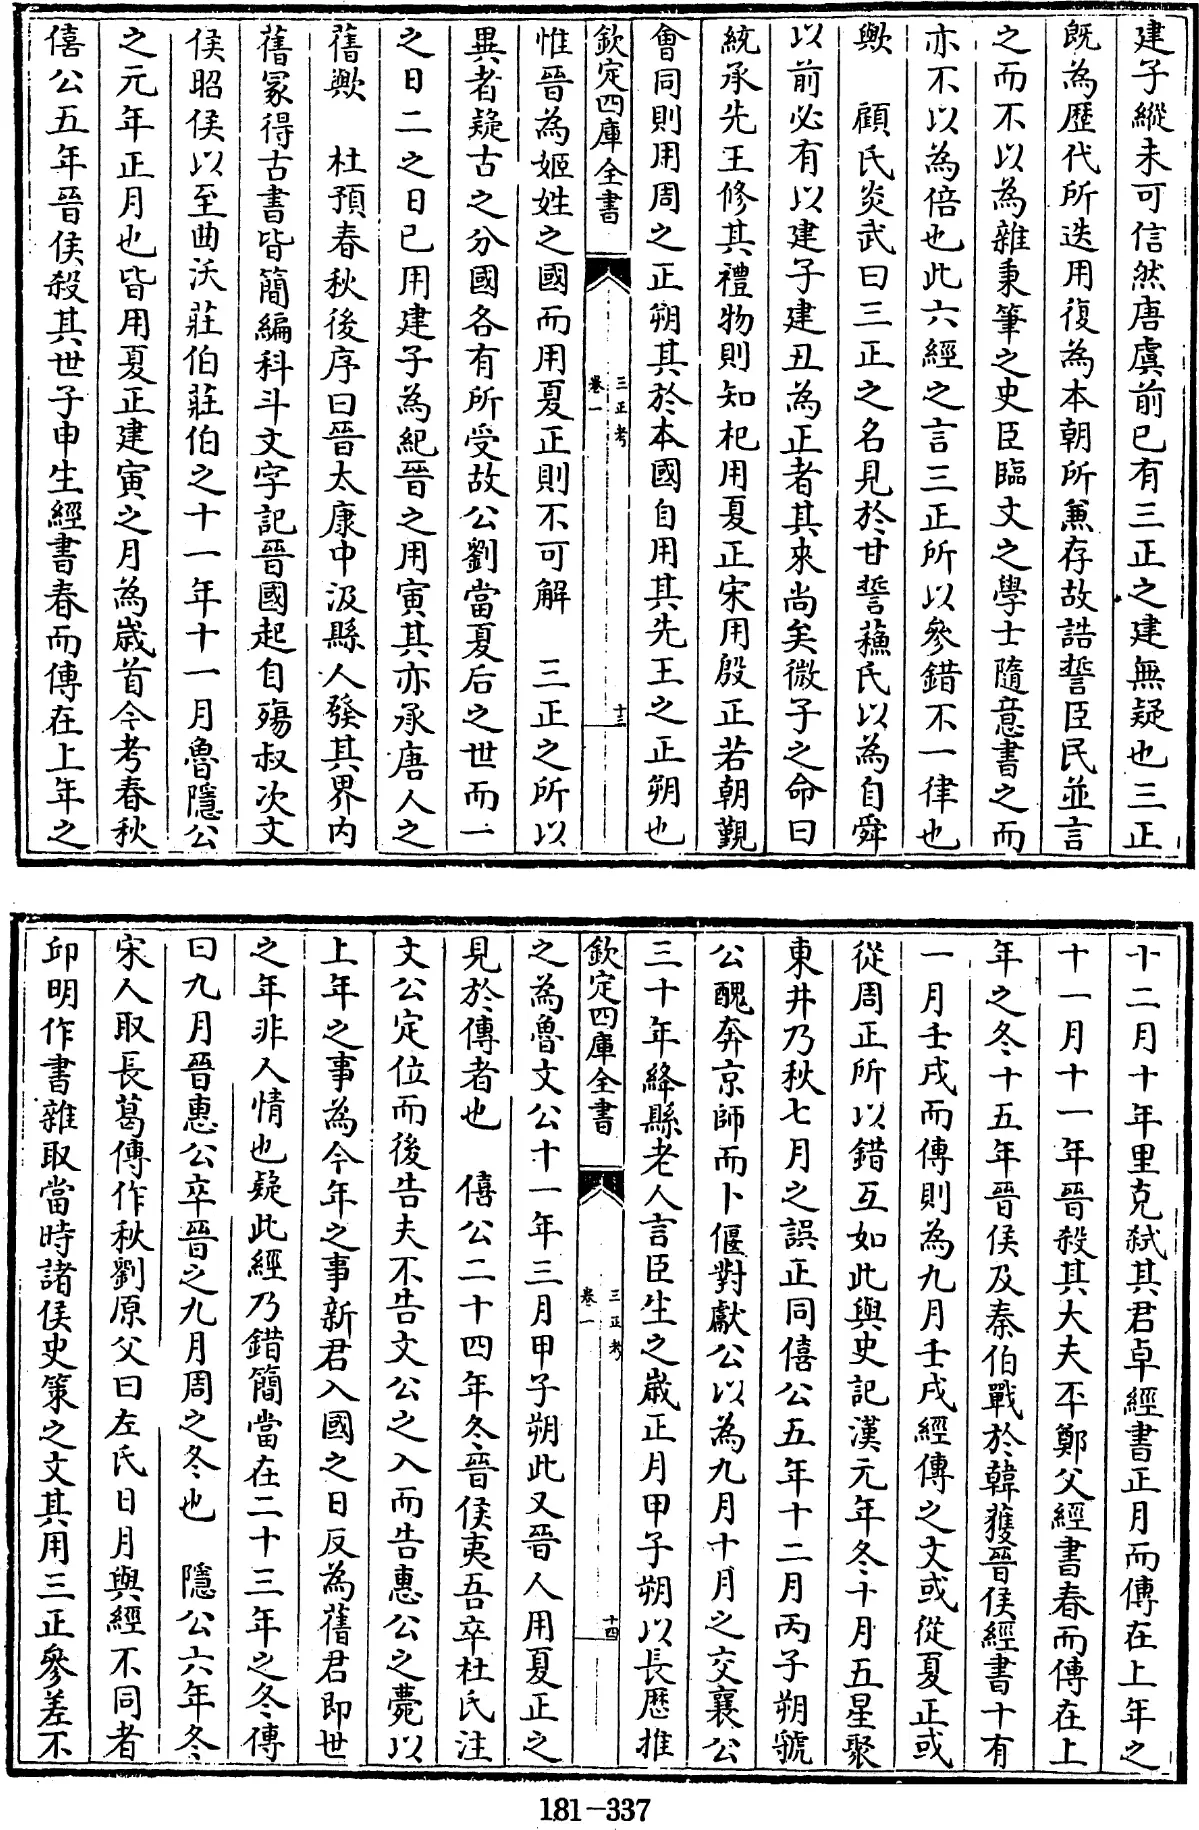 建子縱未可信然唐虞前已有三正之建無疑也三正
既為歴代所迭用復為本朝所兼存故誥誓臣民並言
之而不以為雜秉筆之史臣臨文之學士隨意書之而
亦不以為倍也此六經之言三正所以參錯不一律也
歟　顧氏炎武曰三正之名見於甘誓蘓氏以為自舜
以前必有以建子建丑為正者其來尚矣微子之命曰
統承先王修其禮物則知杞用夏正宋用殷正若朝覲
會同則用周之正朔其於本國自用其先王之正朔也
欽定四庫全書
三正考
卷一
十三
惟晉為姬姓之國而用夏正則不可解　三正之所以
異者疑古之分國各有所受故公劉當夏后之世而一
之日二之日已用建子為紀晉之用寅其亦承唐人之
舊歟　杜預春秋後序曰晉太康中汲縣人發其界内
舊冢得古書皆簡編科斗文字記晉國起自殤叔次文
侯昭侯以至曲沃莊伯莊伯之十一年十一月魯隱公
之元年正月也皆用夏正建寅之月為歳首今考春秋
僖公五年晉侯殺其世子申生經書春而傳在上年之
十二月十年里克弑其君卓經書正月而傳在上年之
十一月十一年晉殺其大夫丕鄭父經書春而傳在上
年之冬十五年晉侯及秦伯戰於韓獲晉侯經書十有
一月壬戌而傳則為九月壬戌經傳之文或從夏正或
從周正所以錯互如此與史記漢元年冬十月五星聚
東井乃秋七月之誤正同僖公五年十二月丙子朔虢
公醜奔京師而卜偃對獻公以為九月十月之交襄公
三十年絳縣老人言臣生之歳正月甲子朔以長歴推
欽定四庫全書
三正考
卷一
十四
之為魯文公十一年三月甲子朔此又晉人用夏正之
見於傳者也　僖公二十四年冬晉侯夷吾卒杜氏注
文公定位而後告夫不告文公之入而告惠公之薨以
上年之事為今年之事新君入國之日反為舊君即世
之年非人情也疑此經乃錯簡當在二十三年之冬傳
曰九月晉惠公卒晉之九月周之冬也　隱公六年冬
宋人取長葛傳作秋劉原父曰左氏日月與經不同者
邱明作書雜取當時諸侯史策之文其用三正參差不
181-337